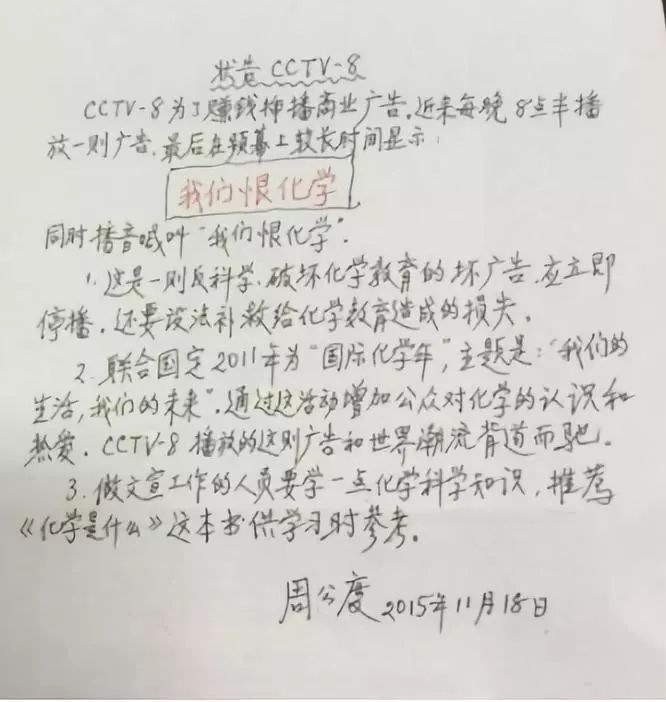 状告 CCTV-8
CCTV-8为了赚钱抻播商业广告。近来每晚8点半播
放一则广告，最后在频幕上较长时间显示：
我们恨化学
同时播音喊叫“我们恨化学”.
1. 这是一则反科学、破坏化学教育的坏广告，应立即
停播，还要设法补救给化学教育造成的损失。
2. 联合国定2011年为“国际化学年”，主题是：“我们的
生活，我们的未来”。通过这活动增加公众对化学的认识和
热爱。CCTV-8播放的这则广告和世界潮流背道而驰。
3. 做文宣工作的人员要学一点化学科学知识，推荐
《化学是什么》这本书供学习时参考。
周公度 2015年11月18日